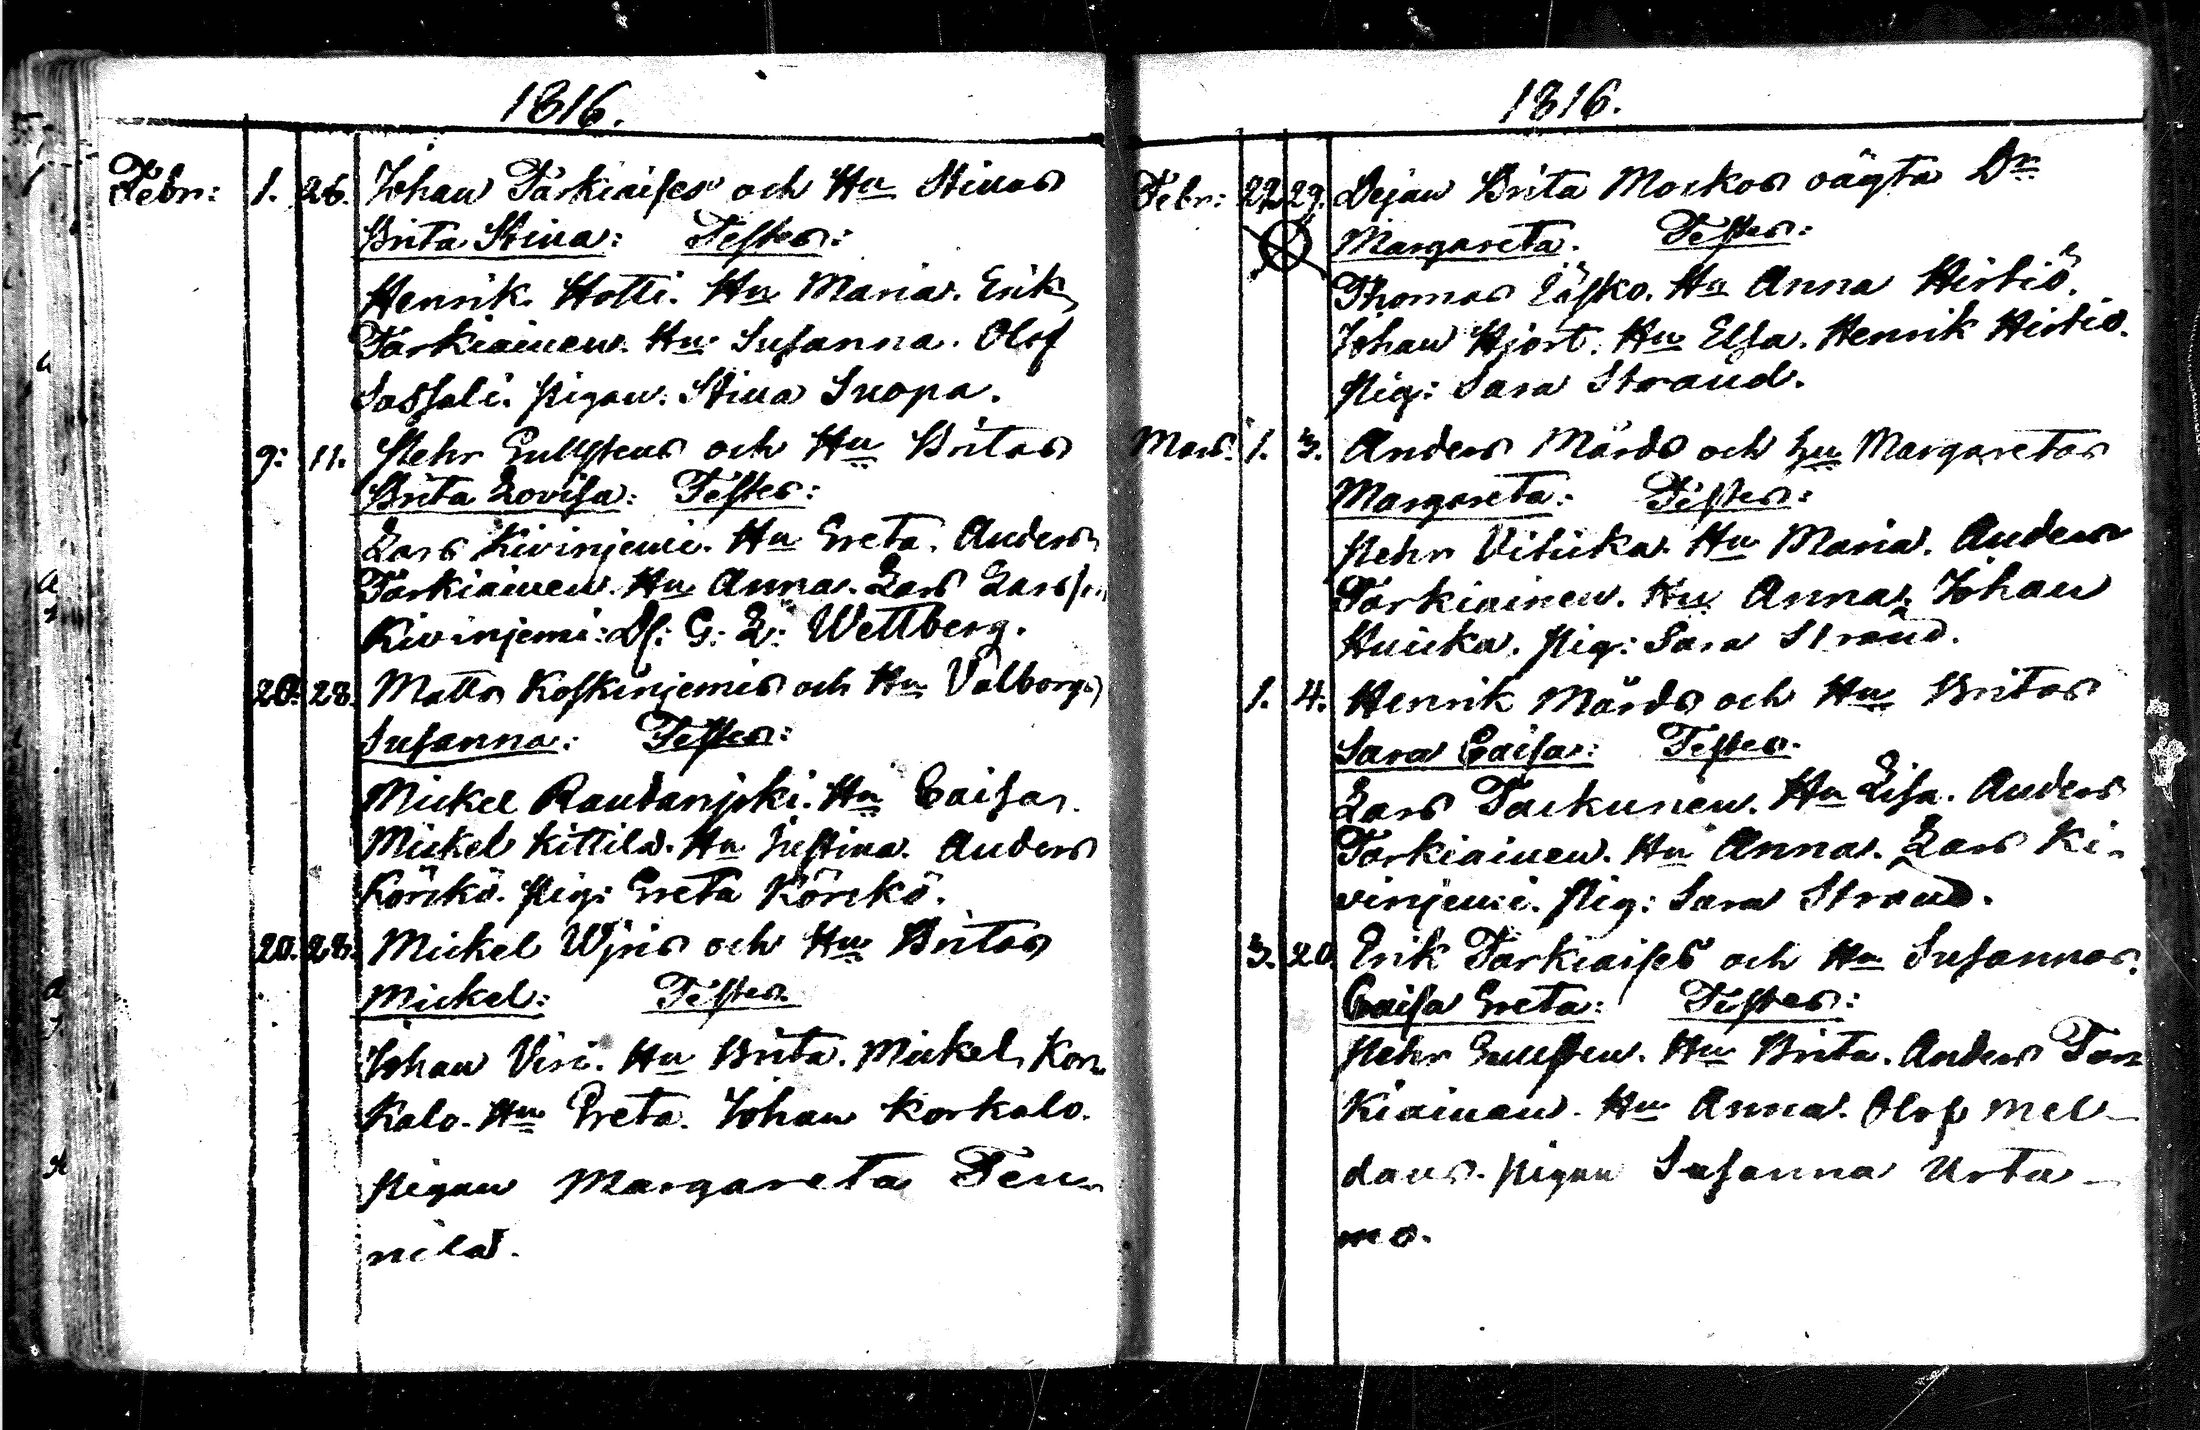 1816.
Febr: 1. 26. Johan Tarkiaises och Hu Stinas
Brita Stina: Testes:
Henrik Hotti. Hu Maria. Erik
Tarkiainen. Hu Susanna. Olof
Sassali. Pigan. Stina Snopa.
9: 11. Pehr Gullstens och Hu Britas
Brita Lovisa: Testes:
Lars Kivinjemi. Hu Greta. Anders
Tarkiainen. Hu Anna. Lars Larsson
Kivinjemi: Df: G: L: Wettberg.
20. 28. Matts Koskinjemis och Hu Valborgs
Susanna: Testes:
Mickel Raudanjoki. Hu Caisa.
Mickel Kittilä. Hu Justina. Anders
Körckö. Pig: Greta Körckö.
20. 28. Mickel Wjris och Hu Britas
Mickel: Testes.
Johan Viri. Hu Brita. Mickel Kor-
kalo. Hu Greta. Johan Korkalo.
Pigan Margareta Ten-
nilä.
1816.
Febr: 22. 29. Dejan Brita Morkos oägta Dr
Margareta. Testes:
Thomas Hu Anna Hirtiö.
Johan Hjort. Hu Elsa. Henrik Hirtiö.
Pig: Sara Strand.
Mars. 1. 3. Anders Mårds och Hu Margaretas
Margareta: Testes:
Pehr Vitikka. Hu Maria. Anders
Tarkiainen. Hu Anna. Johan
Huikka. Pig: Sara Strand.
1. 4. Henrik Mårds och Hu Britas
Sara Caisa: Testes.
Lars Taikunen. Hu Lisa. Anders
Tarkiainen. Hu Anna. Lars Ki-
vinjemi. Pig: Sara Strand.
3. 20. Erik Tarkiaises och Hu Susannas.
Caisa Greta: Testes:
Pehr Gullsten. Hu Brita. Anders Tar-
kiainen. Hu Anna. Olof Mel-
daus. Pigan Susanna Urta-
mo.